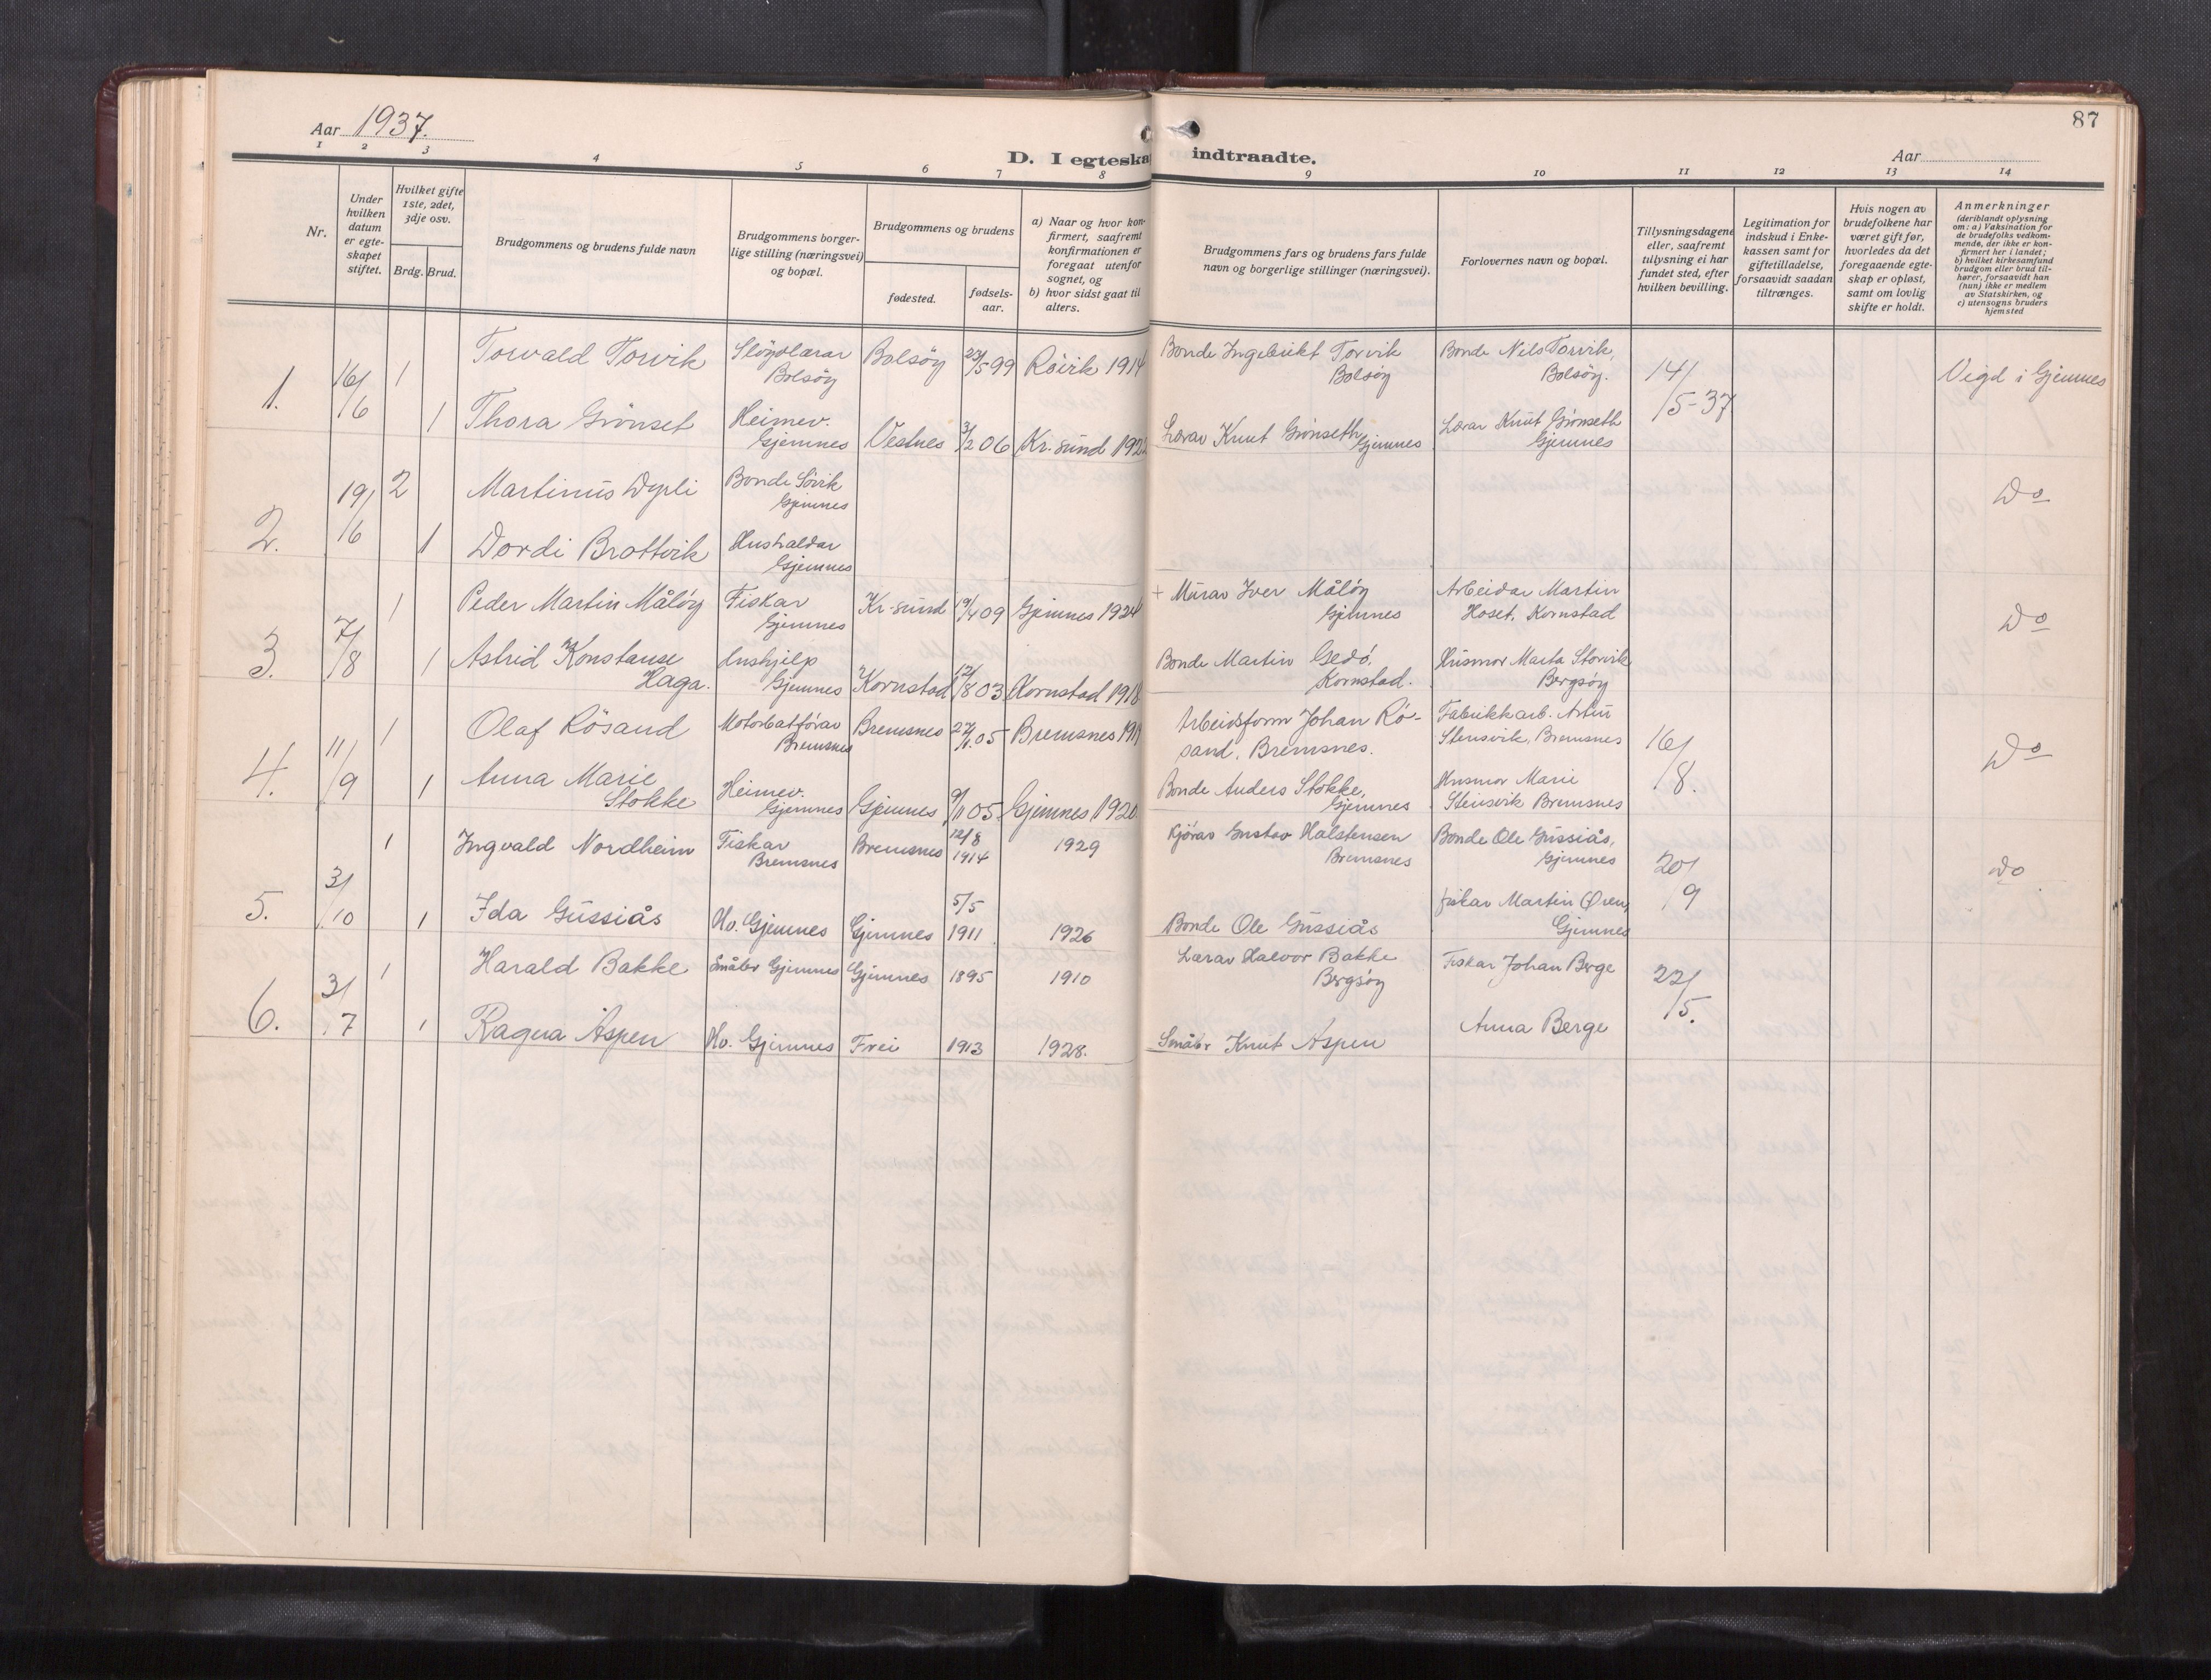 87
Aar 1937.
Aar
D. I egteska indtraadte.
1 2 3 4 5 6 7 8 9 10 11 12 13 14
Nr.
Under hvilken datum er egte-skapet stiftet.
Hvilket gifte 1ste, 2det, 3dje osv.
Brdg. Brud.
Brudgommens og brudens fulde navn
Brudgommens borger-lige stilling (næringsvei) og bopæl.
Brudgommens og brudens
fødested.
fødsels-aar.
a) Naar og hvor kon-firmert, saafremt konfirmationen er foregaat utenfor sognet, og
b) hvor sidst gaat til alters.
Brudgommens fars og brudens fars fulde navn og borgerlige stillinger (næringsvei).
Forlovernes navn og bopæl.
Tillysningsdagene eller, saafremt tillysning ei har fundet sted, efter hvilken bevilling.
Legitimation for indskud i Enke-kassen samt for giftetilladelse, forsaavidt saadan tiltrænges.
Hvis nogen av brudefolkene har været gift før, hvorledes da det foregaaende egte-skap er opløst, samt om lovlig skifte er holdt.
Anmerkninger
(deriblandt oplysning om: a) Vaksination for de brudefolks vedkom-mende, der ikke er kon-firmert her i landet; b) hvilket kirkesamfund brudgom eller brud til-hører, forsaavidt han (hun) ikke er medlem av Statskirken, og c) utensogns bruders hjemsted
1. 16/6 1 Torvald Torvik Sløydlærar Bolsöy Bolsöy 23/5 99 Röirk 1914 Bonde Ingebrikt Torvik Bolsöy Bonde Nils Torvik, Bolsöy. 14/5-37 Vigd i Gjemnes
1 Thora Grönset Heimev. Gjemnes Vestnes 3/2 06 Kr.sund 1922 Lærar Knut Grönseth Gjemnes Lærar Knut Grönseth Gjemnes
2. 19/6 2 Martinus Dyrli Bonde Sövik Gjemnes Do
1 Dordi Brattvik Hushaldar Gjemnes
3. 7/8 1 Peder Martin Målöy Fiskar Gjemnes Kr-sund 19/4 09 Gjemnes 1924 + Murar Iver Målöy Gjemnes Arbeidar Martin Hoset, Kornstad Do
1 Astrid Konstanse Haga. Hushjelp Gjemnes Kornstad 12/8 03 Kornstad 1918 Bonde Martin Gedö, Kornstad. Husmor Marta Storvik Bergsöy
4. 11/9 1 Olaf Rösand Motorbatförar Bremsnes Bremsnes 27/1.05 Bremsnes 1919 Arbeidsform Johan Rö-sand, Bremsnes. Fabrikkarb. Stensvik, Bremsnes 16/8. Do
1 Anna Marie Stokke Heimev. Gjemnes Gjemnes 9/11 05 Gjemnes 1920. Bonde Anders Stokke, Gjemnes Husmor Marie Stensvik Bremsnes
5. 3/10 1 Ingvald Nordheim Fiskar Bremsnes Bremsnes 12/8 1914 1929 Kjörar Gustav Halstensen Bremsnes Bonde Ole Gussiås, Gjemnes 20/9 do
1 Ida Gussiås Hv. Gjemnes Gjemnes 5/5 1911 1926 Bonde Ole Gussiås fiskar Martin Øren, Gjemnes
6. 3/7 1 Harald Bakke Småbr Gjemnes Gjemnes 1895 1910 Lærar Halvor Bakke Bergsöy Fiskar Johan Berge 22/5.
1 Ragna Aspen Hv. Gjemnes Frei 1913 1928. Småbr Knut Aspen Anna Berge